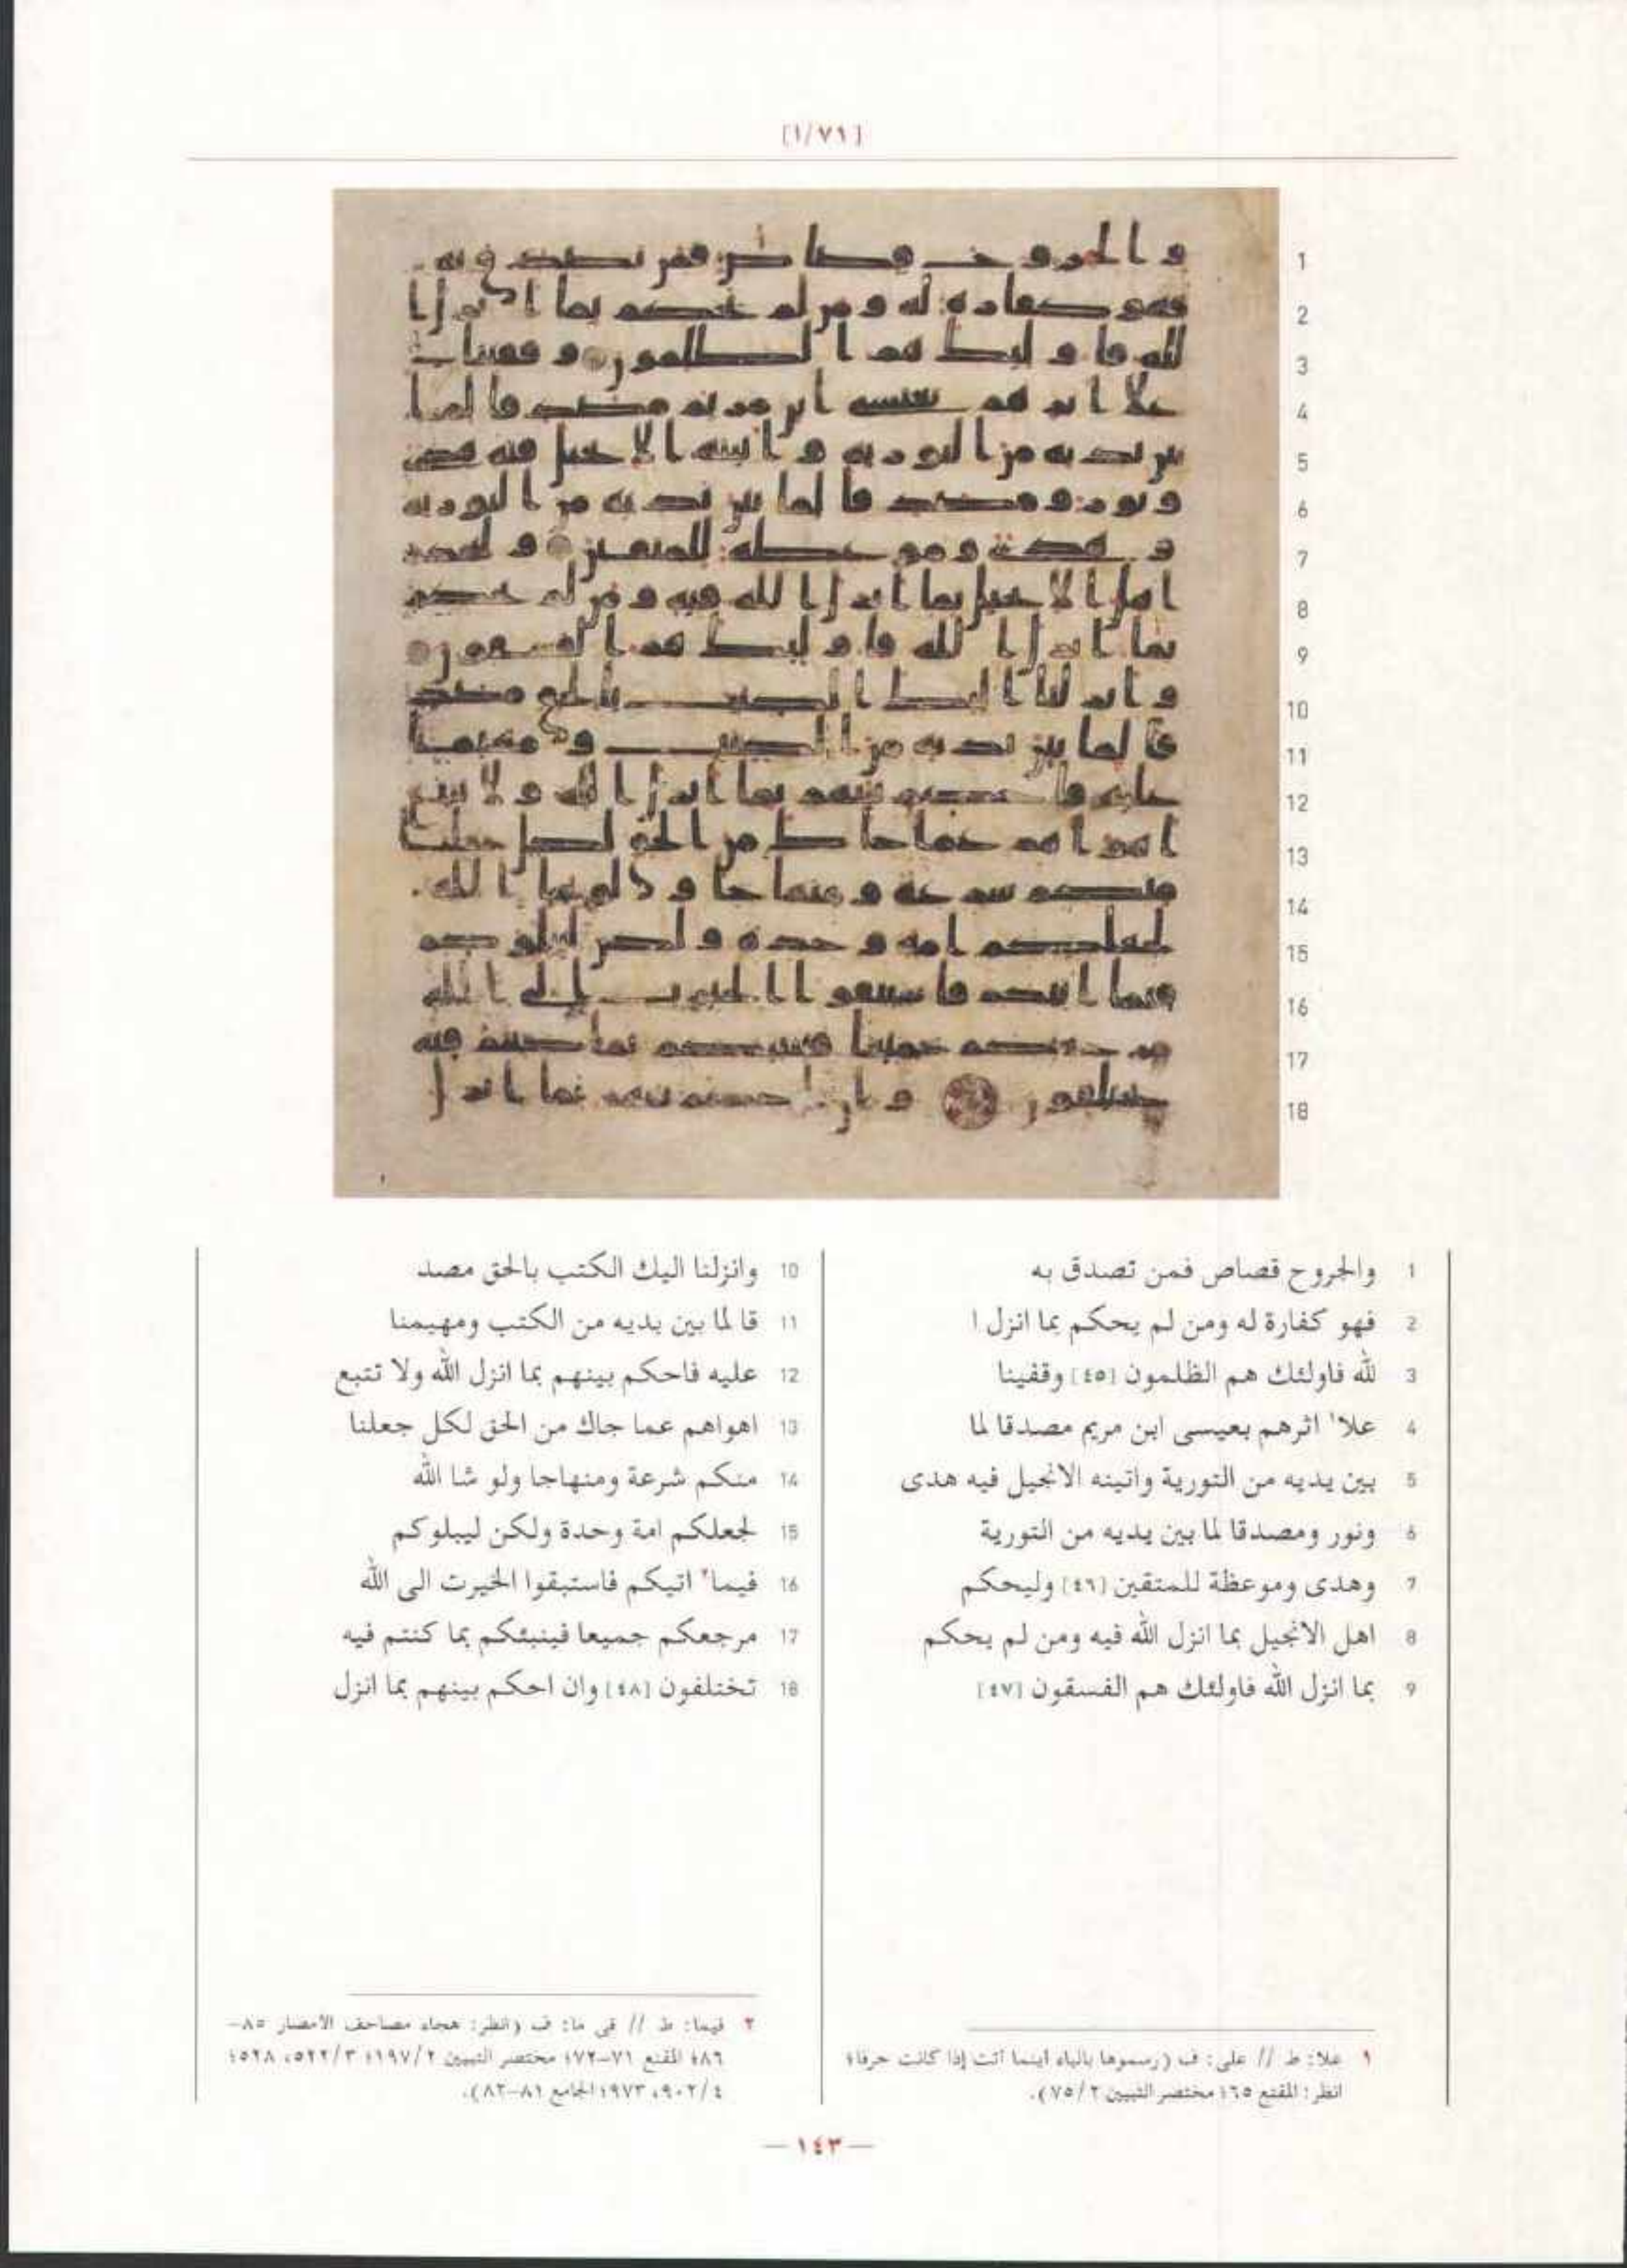 [١/٧١]
1
2
3
4
5
6
7
8
9
10
11
12
13
14
15
16
17
18
1 والجروح قصاص فمن تصدق به
2 فهو كفارة له ومن لم يحكم بما انزل ا
3 لله فاولئك هم الظلمون [٤٥] وقفينا
4 علا١ اثرهم بعيسى ابن مريم مصدقا لما
5 بين يديه من التورية واتينه الانجيل فيه هدى
6 ونور ومصدقا لما بين يديه من التورية
7 وهدى وموعظة للمتقين [٤٦] وليحكم
8 اهل الانجيل بما انزل الله فيه ومن لم يحكم
9 بما انزل الله فاولئك هم الفسقون [٤٧]
10 وانزلنا اليك الكتب بالحق مصد
11 قا لما بين يديه من الكتب ومهيمنا
12 عليه فاحكم بينهم بما انزل الله ولا تتبع
13 اهواهم عما جاك من الحق لكل جعلنا
14 منكم شرعة ومنهاجا ولو شا الله
15 لجعلكم امة وحدة ولكن ليبلوكم
16 فيما٢ اتيكم فاستبقوا الخيرت الى الله
17 مرجعكم جميعا فينبئكم بما كنتم فيه
18 تختلفون [٤٨] وان احكم بينهم بما انزل
١ علا: ط // على: ف (رسموها بالياء أينما أتت إذا كانت حرفا؛
انظر: المقنع ٦٥؛ مختصر التبيين ٧٥/٢).
٢ فيما: ط // في ما: ف (انظر: هجاء مصاحف الأمصار ٨٥–
٨٦؛ المقنع ٧١–٧٢؛ مختصر التبيين ١٩٧/٢؛ ٥٢٢/٣، ٥٢٨؛
٩٠٢/٤، ٩٧٣؛ الجامع ٨١–٨٢).
— ١٤٣ —